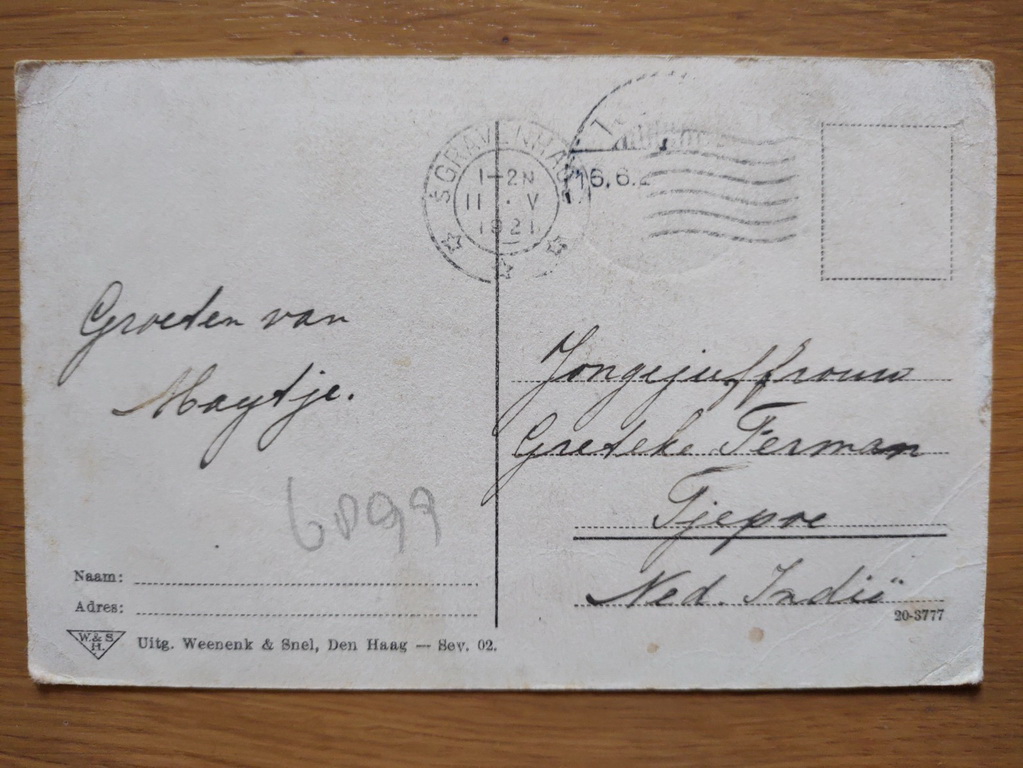 'S GRAVENHAGE
1-2N
11 · V
1921
16.6.2
Groeten van
Maytje.
Jongejuffrouw
Greteke Ferman
Tjepoe
Ned. Indië
6099
Naam:
Adres:
W. & S.
H.
Uitg. Weenenk & Snel, Den Haag — Sev. 02.
20-3777